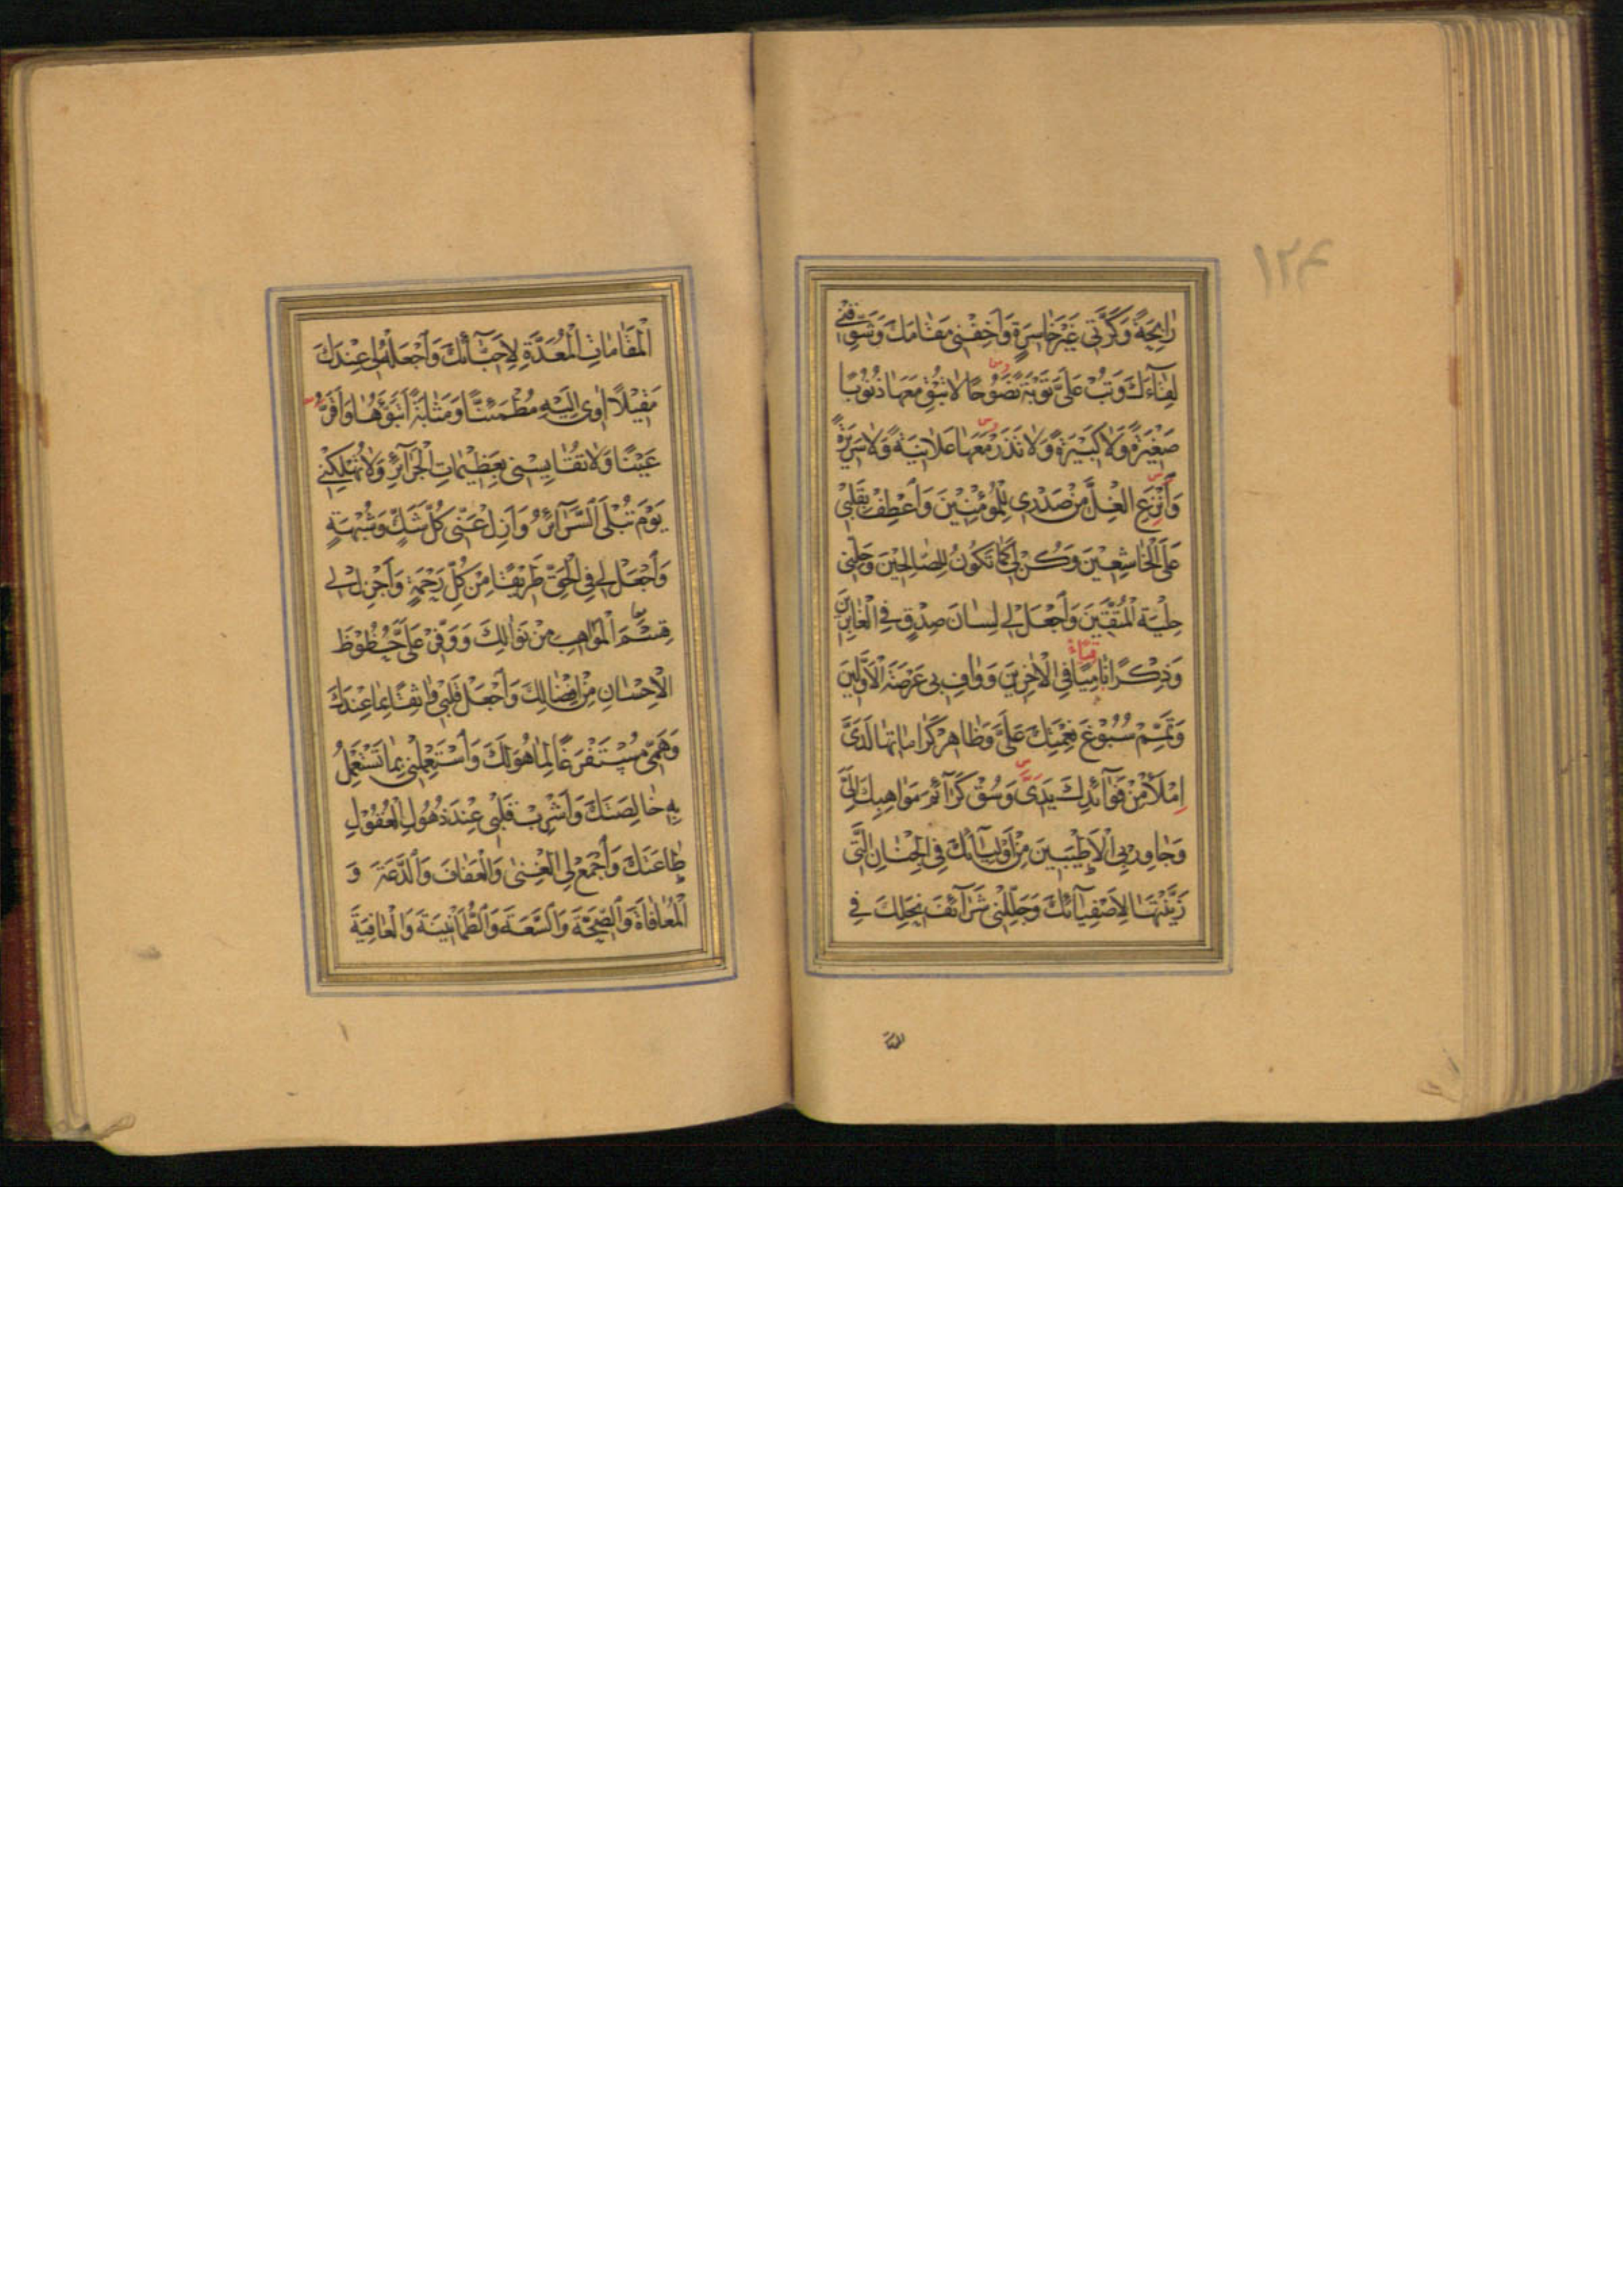 ۱۲۴
رٰابِحَةً وَكَرَّتي غَيْرَ خٰاسِرَةٍ وَاَخِفْني مَقٰامَكَ وَشَوِّقْني
لِقٰآءَكَ وَتُبْ عَلَيَّ تَوْبَةً نَصُوحًا لٰا تُبْقِ مَعَهٰا ذُنُوبًا
صَغيرَةً وَلٰا كَبيرَةً وَلٰا تَذَرْ مَعَهٰا عَلٰانِيَةً وَلٰا سَريرَةً
وَاَنْزِعِ الْغِلَّ مِنْ صَدْري لِلْمُؤْمِنينَ وَاَعْطِفْ بِقَلْبي
عَلَى الْخٰاشِعينَ وَكُنْ لي كَمٰا تَكُونُ لِلصّٰالِحينَ وَحَلِّني
حِلْيَةَ الْمُتَّقينَ وَاَجْعَلْ لي لِسٰانَ صِدْقٍ فِي الْغٰابِرينَ
وَذِكْرًا نٰامِيًا فِي الْاٰخِرينَ وَوٰافِ بي عَرْصَةَ الْاَوَّلينَ
وَتَمِّمْ سُبُوغَ نِعْمَتِكَ عَلَيَّ وَظٰاهِرْ كَرٰامٰاتِهٰا لَدَيَّ
اِمْلَأْ مِنْ فَوٰآئِدِكَ يَدَيَّ وَسُقْ كَرٰآئِمَ مَوٰاهِبِكَ اِلَيَّ
وَجٰاوِرْ بِيَ الْاَطْيَبينَ مِنْ اَوْلِيٰآئِكَ فِي الْجِنٰانِ الَّتي
زَيَّنْتَهٰا لِاَصْفِيٰآئِكَ وَجَلِّلْني شَرٰآئِفَ نِحَلِكَ فِي
الْمَقٰامٰاتِ الْمُعَدَّةِ لِاَحِبّٰآئِكَ وَاَجْعَلْ لي عِنْدَكَ
مَقيلًا اٰوي اِلَيْهِ مُطْمَئِنًّا وَمَثٰابَةً اَتَبَوَّؤُهٰا وَاَقَرُّ
عَيْنًا وَلٰا تُقٰايِسْني بِعَظيمٰاتِ الْجَرٰآئِرِ وَلٰا تُهْلِكْني
يَوْمَ تُبْلَى السَّرٰآئِرُ وَاَزِلْ عَنّي كُلَّ شَكٍّ وَشُبْهَةٍ
وَاَجْعَلْ لي فِي الْحَقِّ طَريقًا مِنْ كُلِّ رَحْمَةٍ وَاَجْزِلْ لي
قِسَمَ الْمَوٰاهِبِ مِنْ نَوٰالِكَ وَوَفِّرْ عَلَيَّ حُظُوظَ
الْاِحْسٰانِ مِنْ اِفْضٰالِكَ وَاَجْعَلْ قَلْبي وٰاثِقًا بِمٰا عِنْدَكَ
وَهَمّي مُسْتَفْرَغًا لِمٰا هُوَ لَكَ وَاَسْتَعْمِلْني بِمٰا تَسْتَعْمِلُ
بِهِ خٰالِصَتَكَ وَاَشْرِبْ قَلْبي عِنْدَ ذُهُولِ الْعُقُولِ
طٰاعَتَكَ وَاَجْمَعْ لِيَ الْغِنٰى وَالْعَفٰافَ وَالدَّعَةَ وَ
الْمُعٰافٰاةَ وَالصِّحَّةَ وَالسَّعَةَ وَالطُّمَأْنينَةَ وَالْعٰافِيَةَ